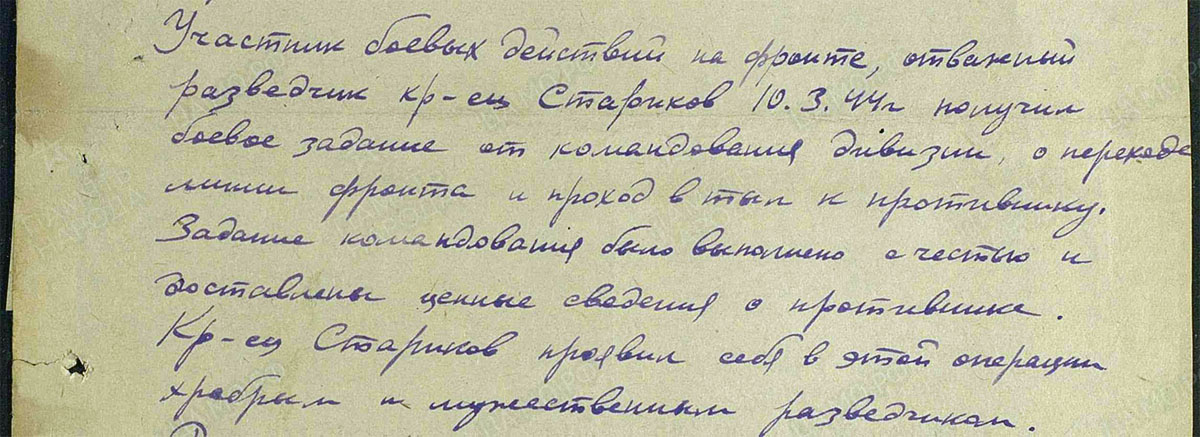 Участник боевых действий на фронте, отважный
разведчик кр-ец Стариков 10.3.44г получил
боевое задание от командования дивизии, о переходе
линии фронта и проход в тыл к противнику.
Задание командования было выполнено с честью и
доставлены ценные сведения о противнике.
Кр-ец Стариков проявил себя в этой операции
храбрым и мужественным разведчиком.